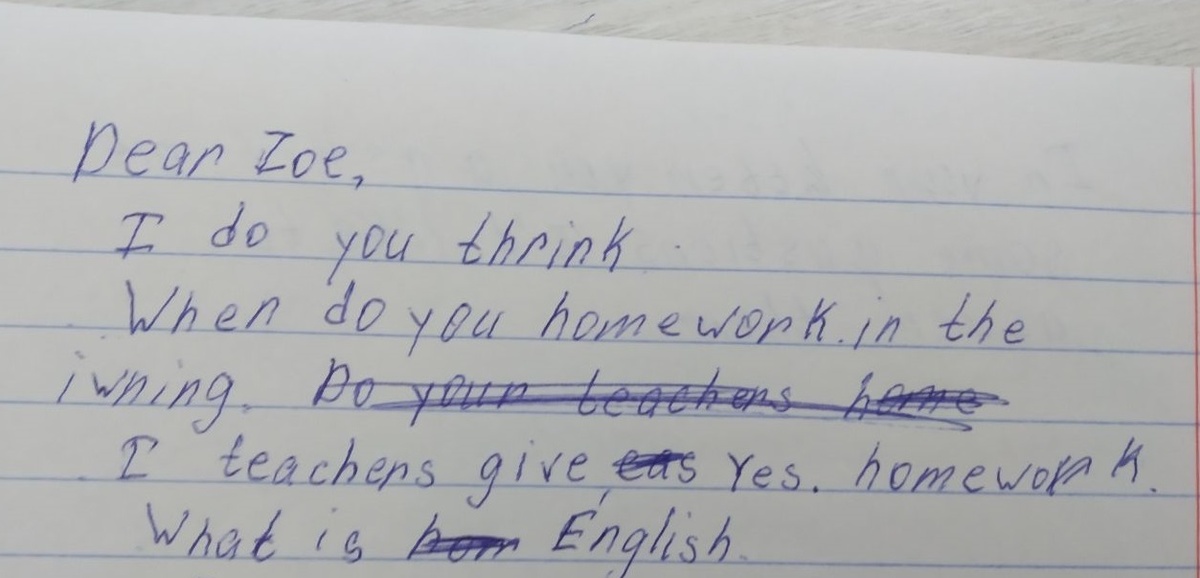 Dear Zoe,
I do you thrink.
When do you homework. in the
iwning. Do your teachers home
I teachers give eas Yes. homework.
What is hom English.